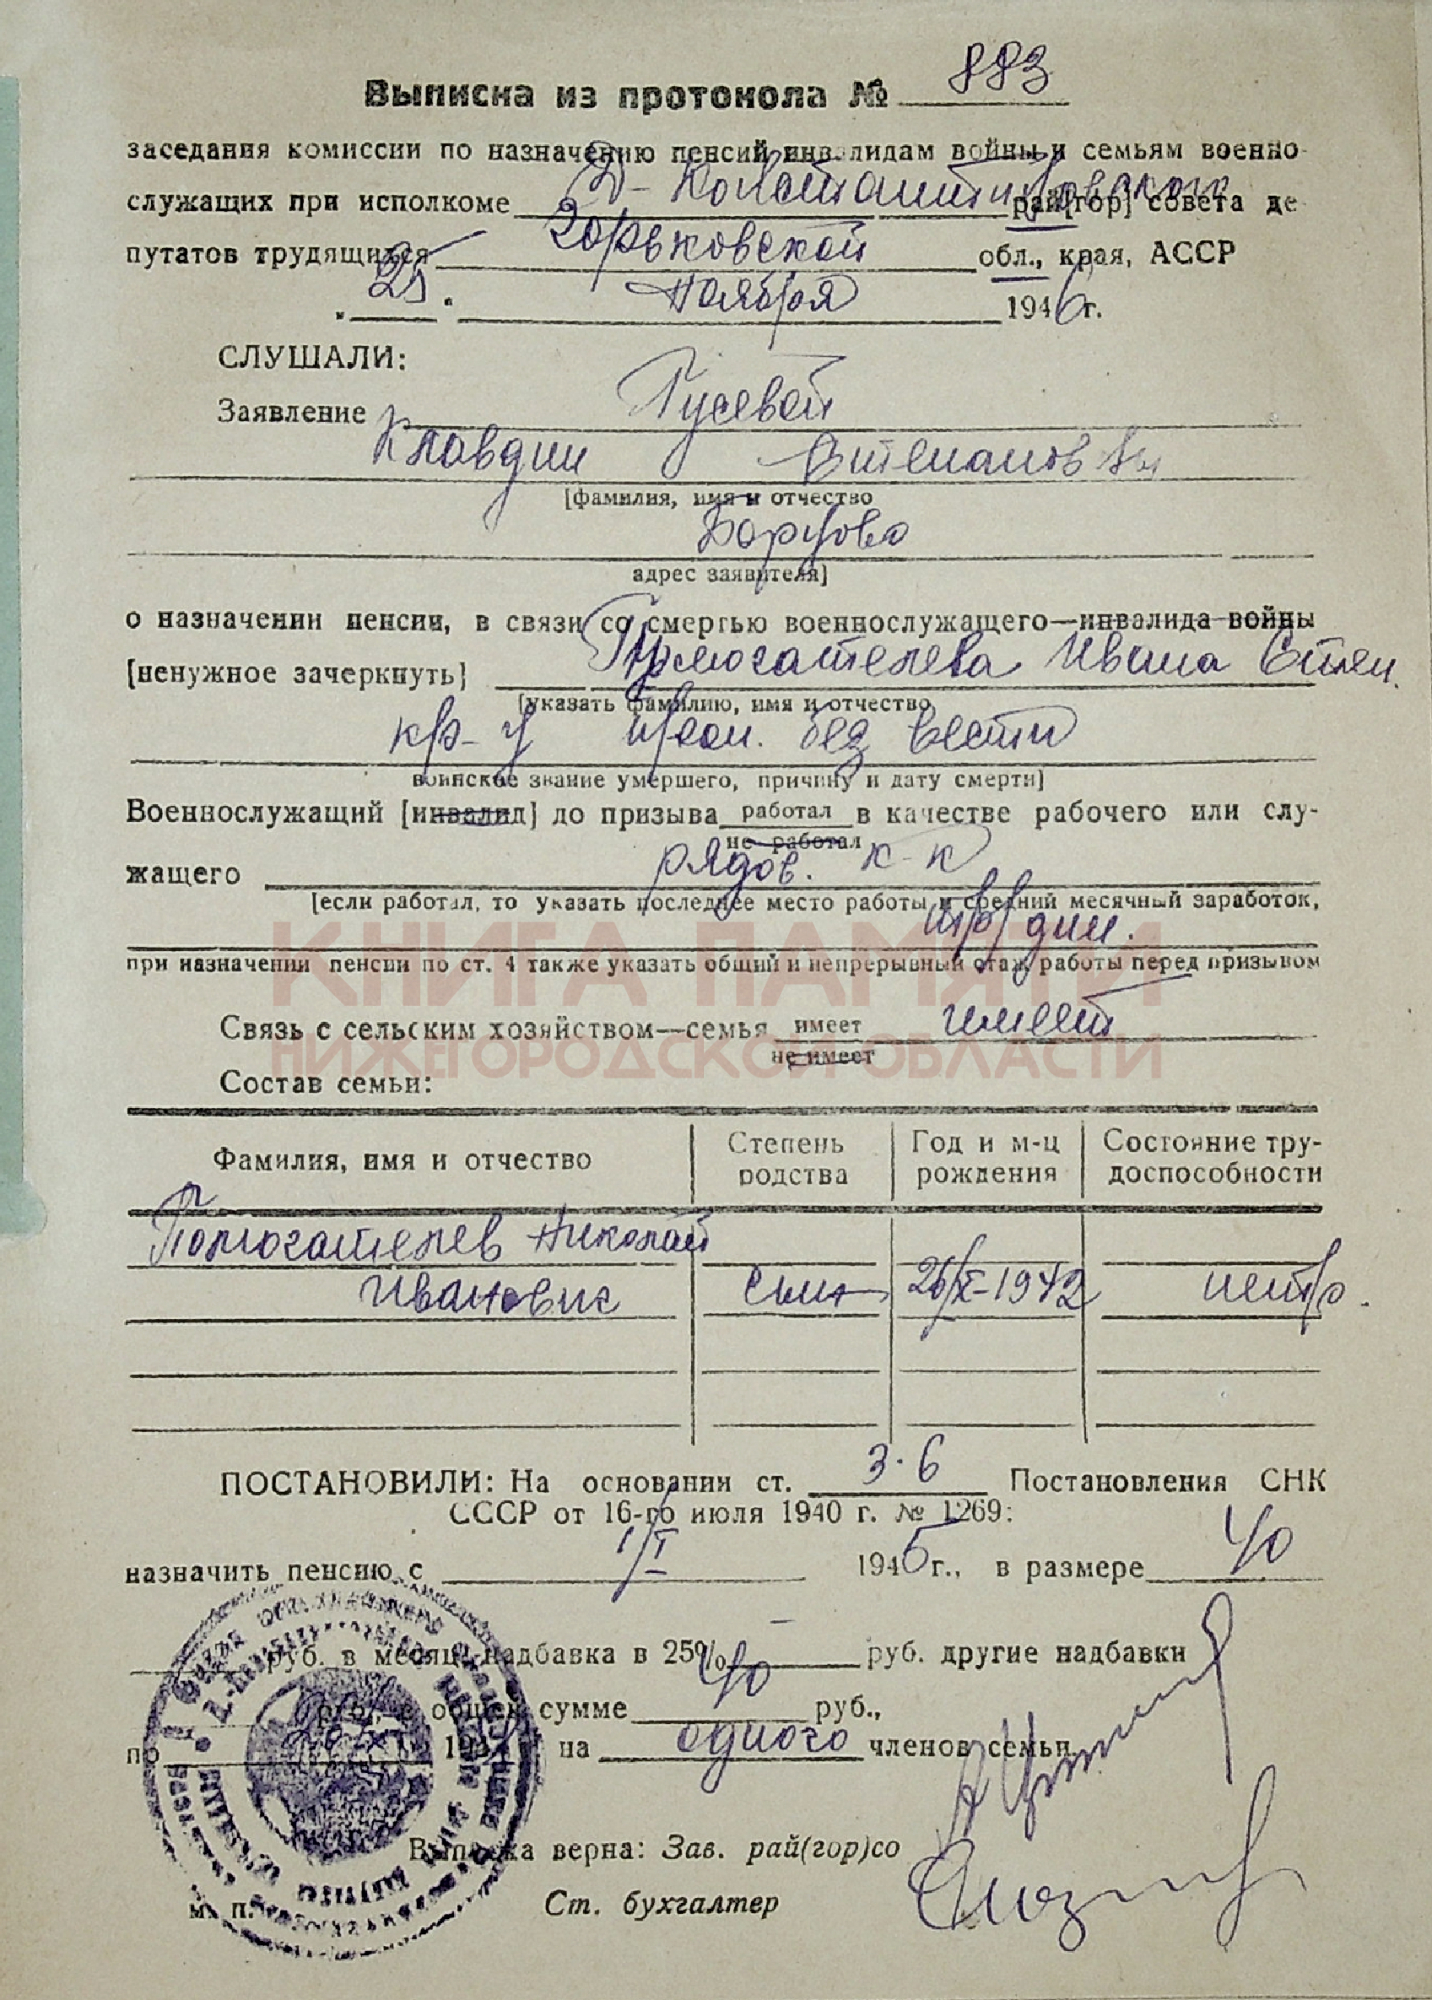 Выписка из протокола № 883
заседания комиссии по назначению пенсий инвалидам войны и семьям военно-
служащих при исполкоме Д-Константиновского рай[гор] совета де
путатов трудящихся Горьковской обл., края, АССР
„25" ноября 1946 г.
СЛУШАЛИ:
Заявление Гусевой
Клавдии Степановны
[фамилия, имя и отчество
Борцово
адрес заявителя]
о назначении пенсии, в связи со смертью военнослужащего—инвалида войны
[ненужное зачеркнуть] Ивана Степ.
[указать фамилию, имя и отчество
кр-ц проп. без вести
воинское звание умершего, причину и дату смерти]
Военнослужащий [инвалид] до призыва работал в качестве рабочего или слу-
не работал
жащего рядов. к-к
[если работал, то указать последнее место работы и средний месячный заработок,
тр/дни.
при назначении пенсии по ст. 4 также указать общий и непрерывный стаж работы перед призывом
КНИГА ПАМЯТИ
Связь с сельским хозяйством—семья имеет имеет
не имеет
НИЖЕГОРОДСКОЙ ОБЛАСТИ
Состав семьи:
Фамилия, имя и отчество Степень родства Год и м-ц рождения Состояние тру-доспособности
Николай
Иванович сын 26/X-1942 нетр.
ПОСТАНОВИЛИ: На основании ст. 3·6 Постановления СНК
СССР от 16-го июля 1940 г. № 1269:
назначить пенсию с 1/I 1945 г., в размере 40
руб. в месяц, надбавка в 25% руб. другие надбавки
руб., в общей сумме 40 руб.,
по 194 на одного членов семьи
Выписка верна: Зав. рай(гор)со
м. п. Ст. бухгалтер